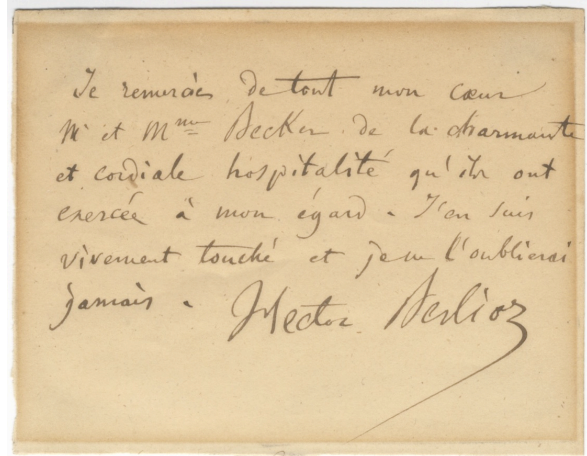 Je remercie de tout mon cœur
Mr et Mme Becker de la charmante
et cordiale hospitalité qu'ils ont
exercée à mon égard. J'en suis
vivement touché et je ne l'oublierai
jamais.
Hector Berlioz